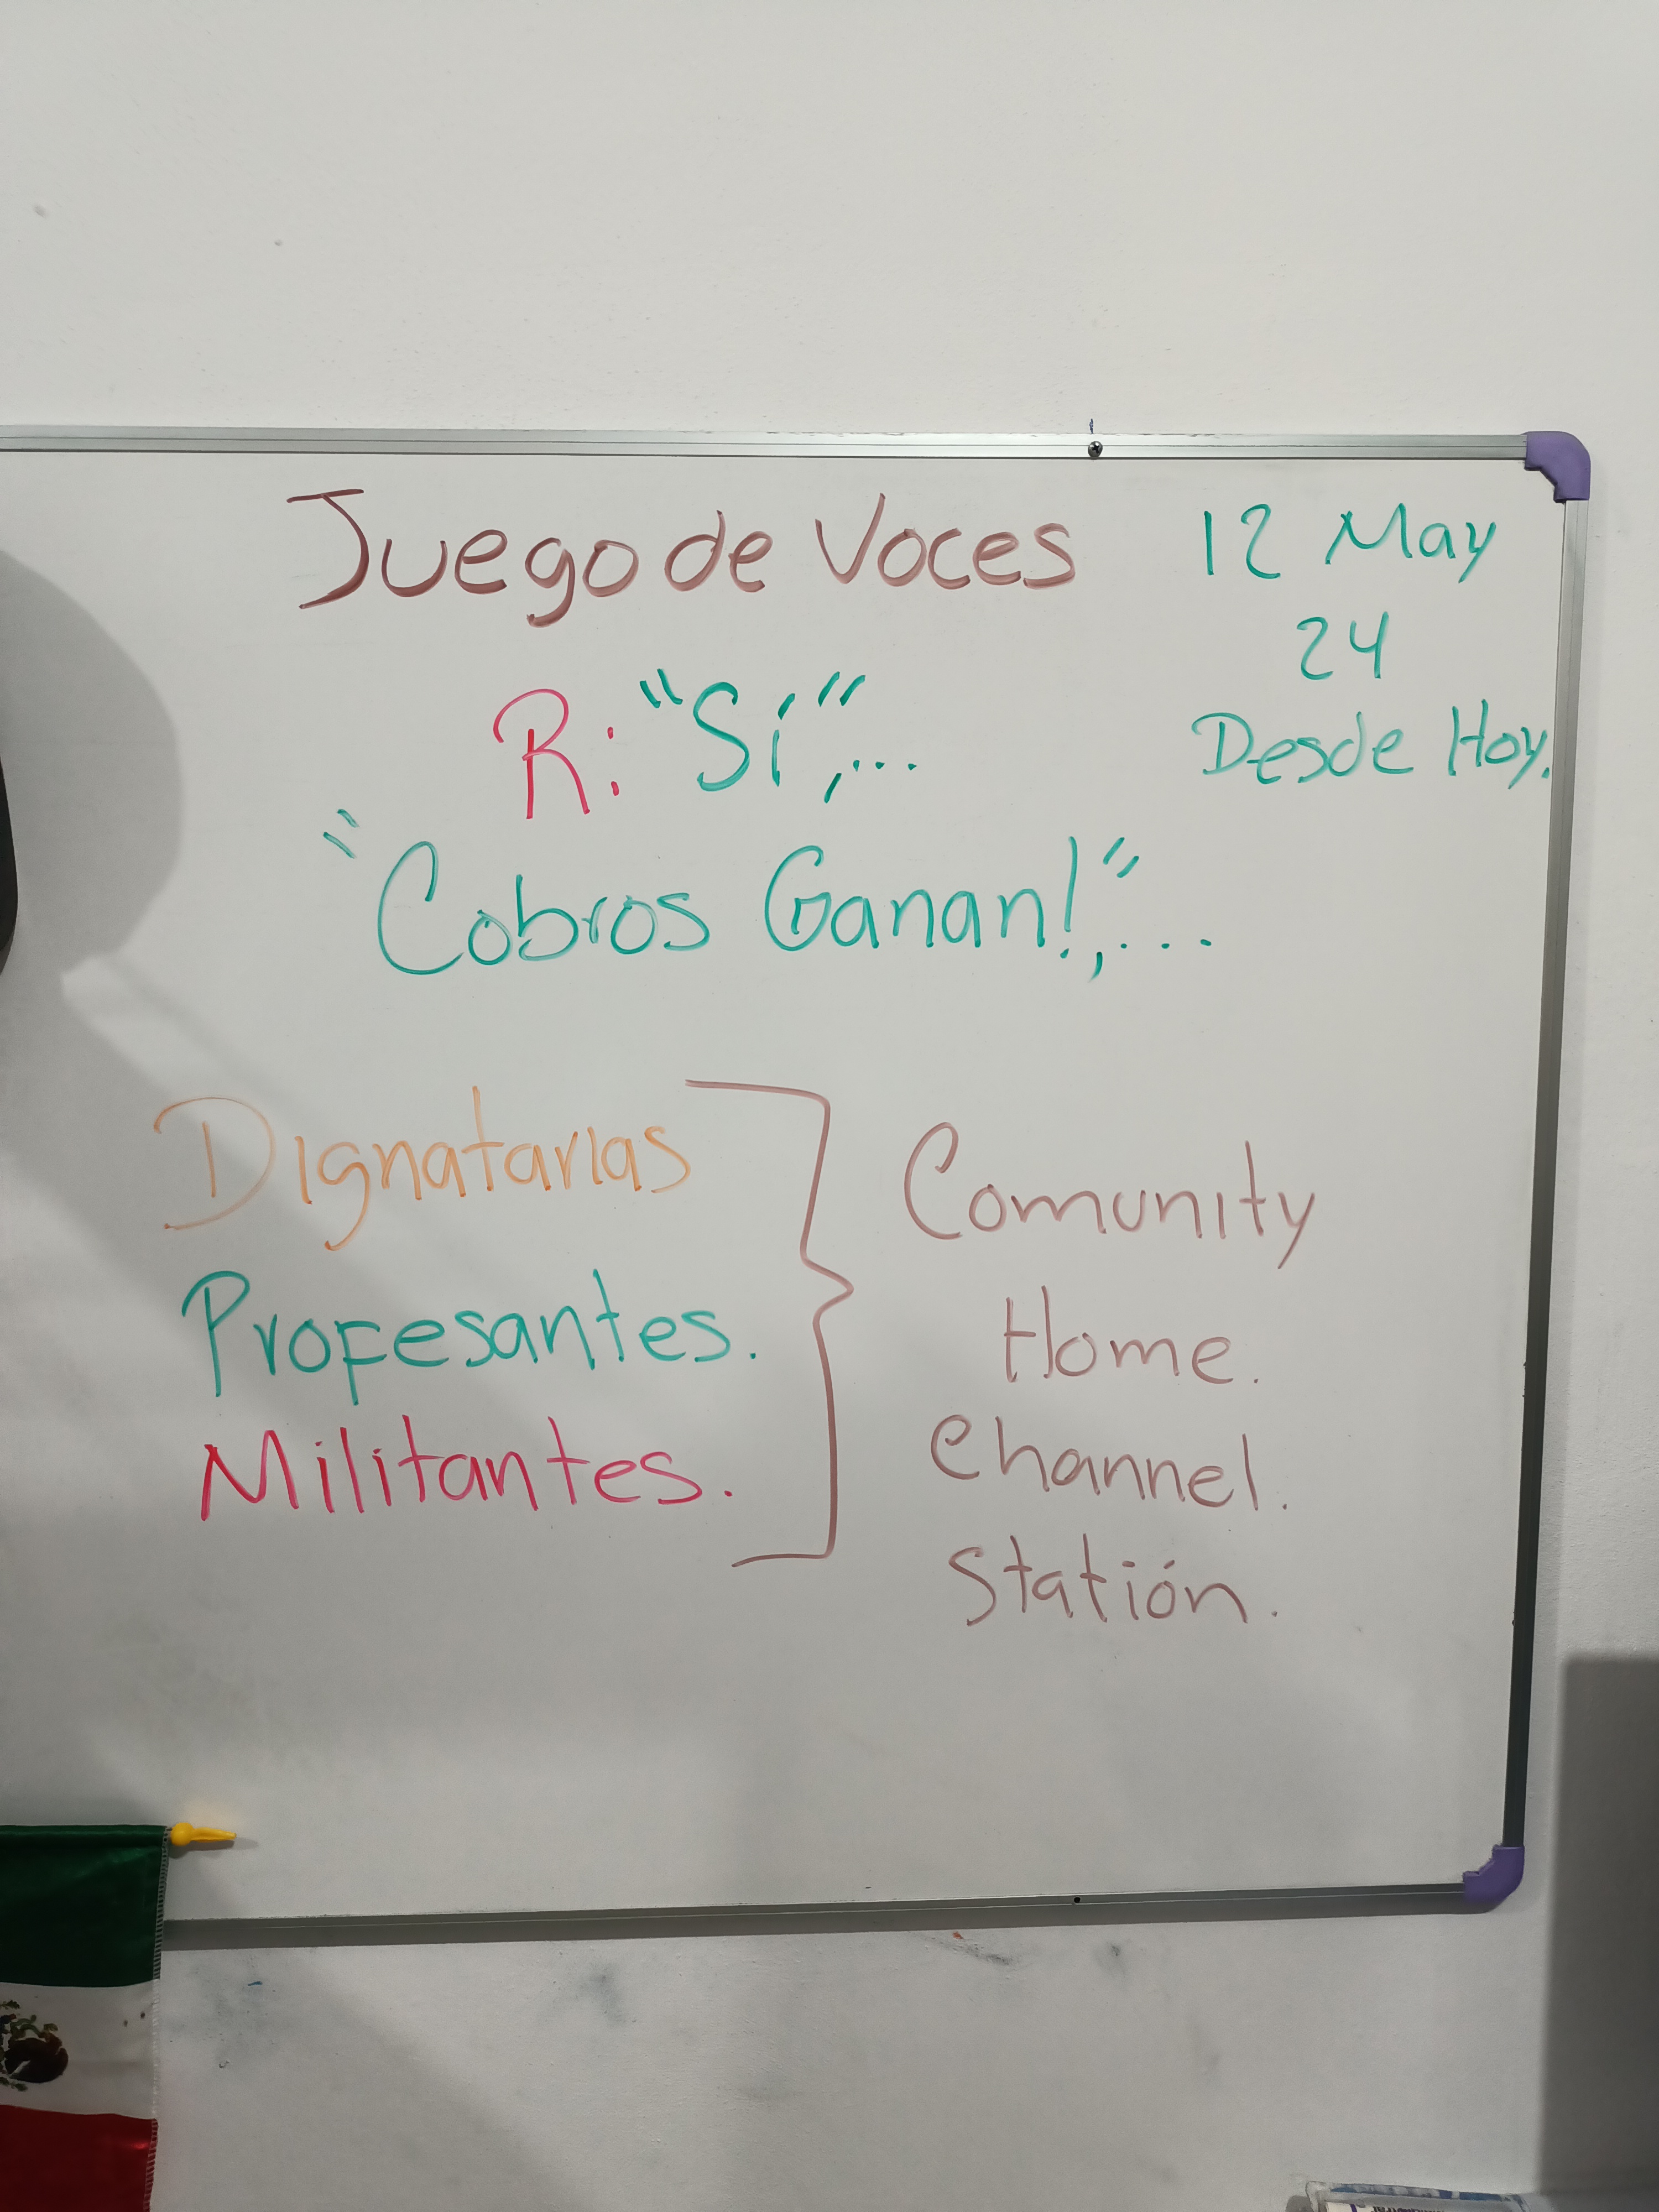 Juego de Voces
12 May
24
Desde Hoy.
R: "Sí",...
"Cobros Ganan!",...
Dignatarias
Profesantes.
Militantes.
Comunity
Home.
Channel.
Statión.